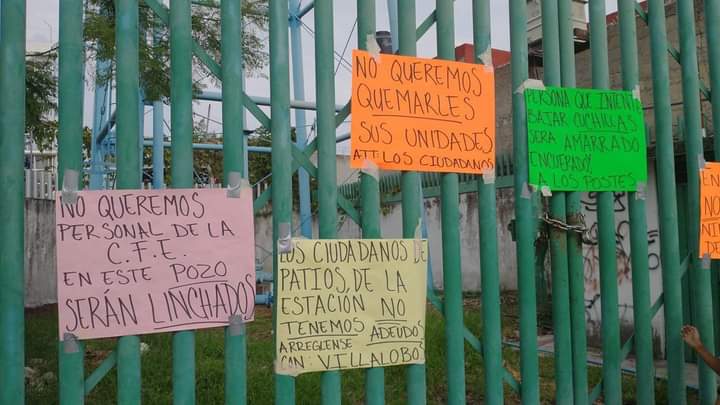 NO QUEREMOS
PERSONAL DE LA
C.F.E.
EN ESTE POZO
SERÁN LINCHADOS
LOS CIUDADANOS DE
PATIOS, DE LA
ESTACIÓN NO
TENEMOS ADEUDOS
ARREGLENSE
CON: VILLALOBO
NO QUEREMOS
QUEMARLES
SUS UNIDADES
ATT LOS CIUDADANOS
PERSONA QUE INTENTE
BAJAR CUCHILLAS
SERA AMARRADO
ENCUERADO,
A LOS POSTES
EN
NO
NI
DE